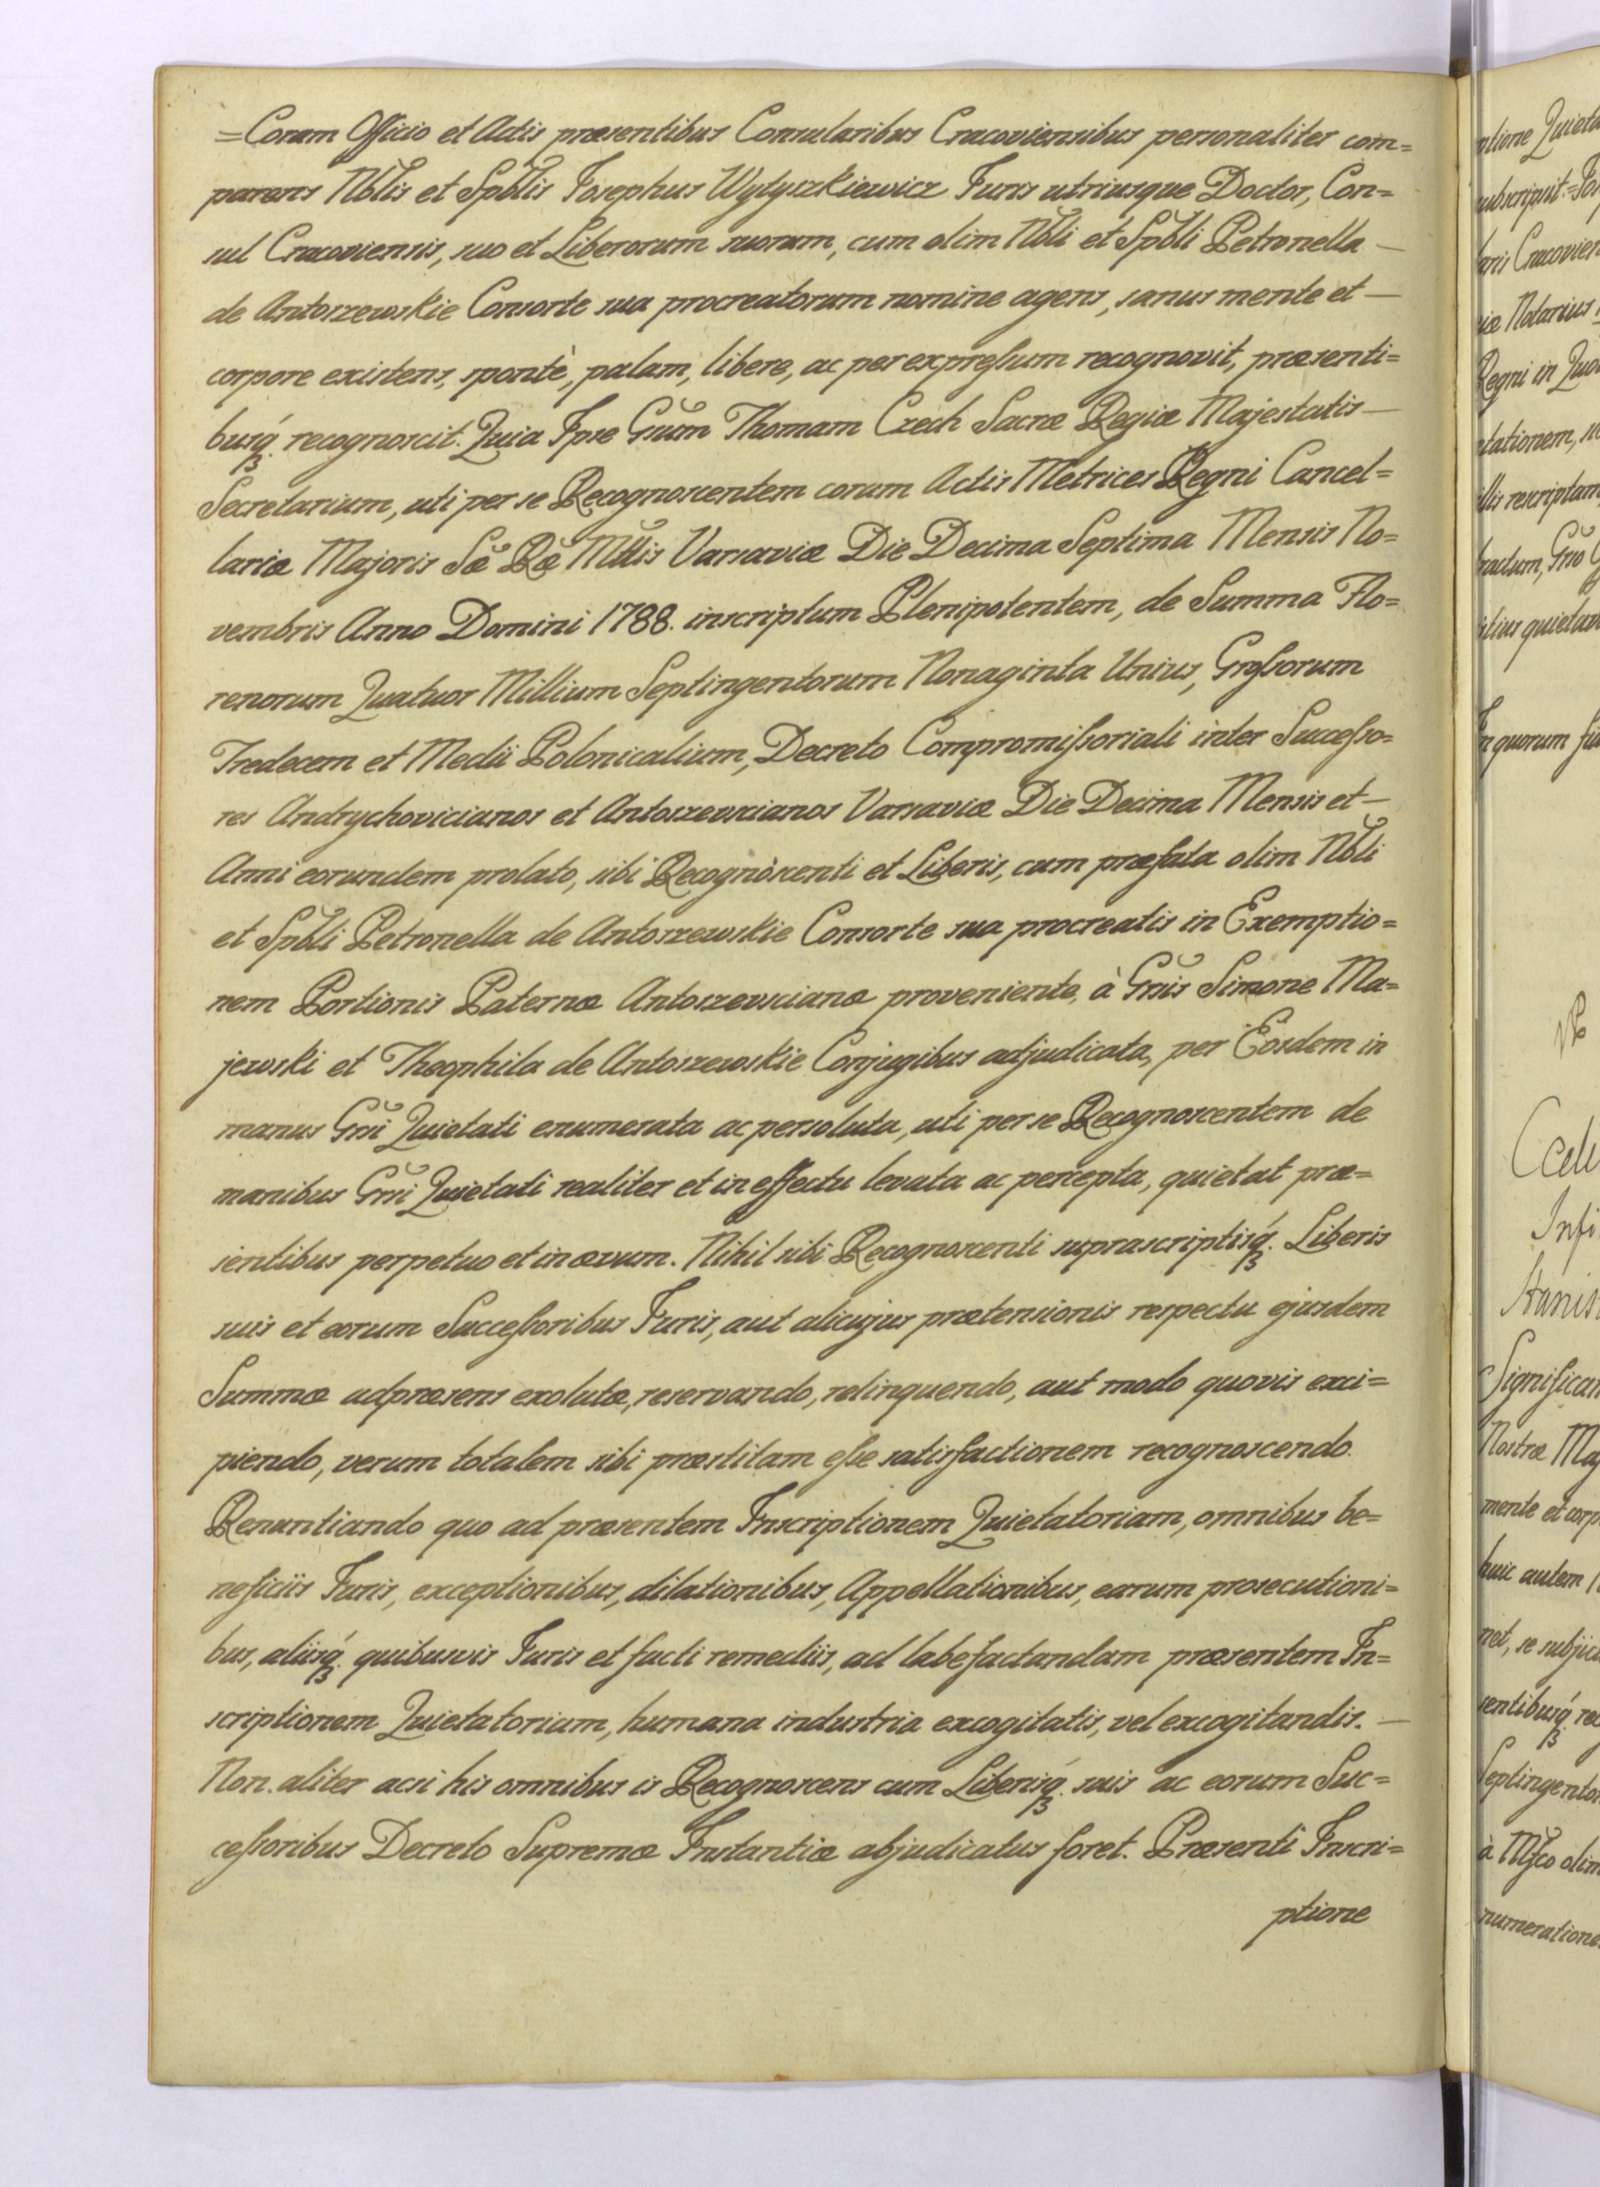 =Coram Officio et Actis præsentibus Consularibus Cracoviensibus personaliter com=
parens Nblis et Spblis Josephus Wytyszkiewicz Juris utriusque Doctor, Con=
sul Cracoviensis, suo et Liberorum suorum, cum olim Nbli et Spbli Petronella —
de Antoszewskie Consorte sua procreatorum nomine agens, sanus mente et —
corpore existens, spontè, palam, libere, ac per expreſsum recognovit, præsenti=
busq́ꝫ recognoscit. Quia Ipse Grsum Thomam Czech Sacræ Regiæ Majestatis —
Secretarium, uti per se Recognoscentem coram Actis Metrices Regni Cancel=
lariæ Majoris Sæ Ræ Mttis Varsaviæ Die Decima Septima Mensis No=
vembris Anno Domini 1788. inscriptum Plenipotentem, de Summa Flo=
renorum Quatuor Millium Septingentorum Nonaginta Unius, Groſsorum
Tredecem et Medii Polonicalium, Decreto Compromiſsoriali inter Succeſso=
res Andrychovicianos et Antoszevscianos Varsaviæ Die Decima Mensis et —
Anni eorundem prolato, sibi Recognoscenti et Liberis, cum præfata olim Nbli
et Spbli Petronella de Antoszewskie Consorte sua procreatis in Exemptio=
nem Portionis Paternæ Antoszevscianæ proveniente, à Grsis Simone Ma=
jewski et Theophila de Antoszewskie Conjugibus adjudicata, per Eosdem in
manus Grsi Quietati enumerata ac persoluta, uti per se Recognoscentem de
manibus Grsi Quietati realiter et in effectu levata ac percepta, quietat præ=
sentibus perpetuo et in ævum. Nihil sibi Recognoscenti suprascriptisq́ꝫ Liberis
suis et eorum Succeſsoribus Juris, aut alicujus prætensionis respectu ejusdem
Summæ adpræsens exolutæ, reservando, relinquendo, aut modo quovis exci=
piendo, verum totalem sibi præstitam eſse satisfactionem recognoscendo.
Renuntiando quo ad præsentem Inscriptionem Quietatoriam, omnibus be=
neficiis Juris, exceptionibus, dilationibus, Appellationibus, earum prosecutioni=
bus, aliisq́ꝫ quibusvis Juris et facti remediis, ad labefactandam præsentem In=
scriptionem Quietatoriam, humana industria excogitatis, vel excogitandis. —
Non aliter acsi his omnibus is Recognoscens cum Liberisq́ꝫ suis ac eorum Suc=
ceſsoribus Decreto Supremæ Instantiæ abjudicatus foret. Præsenti Inscri=
ptione
ptione
subscripsit =
Cracovien
Notarius
Regni in
rescriptam
quorum
Nostræ
mente et
huic autem
net, se
sentibusq́ꝫ
à
olim
numeratione